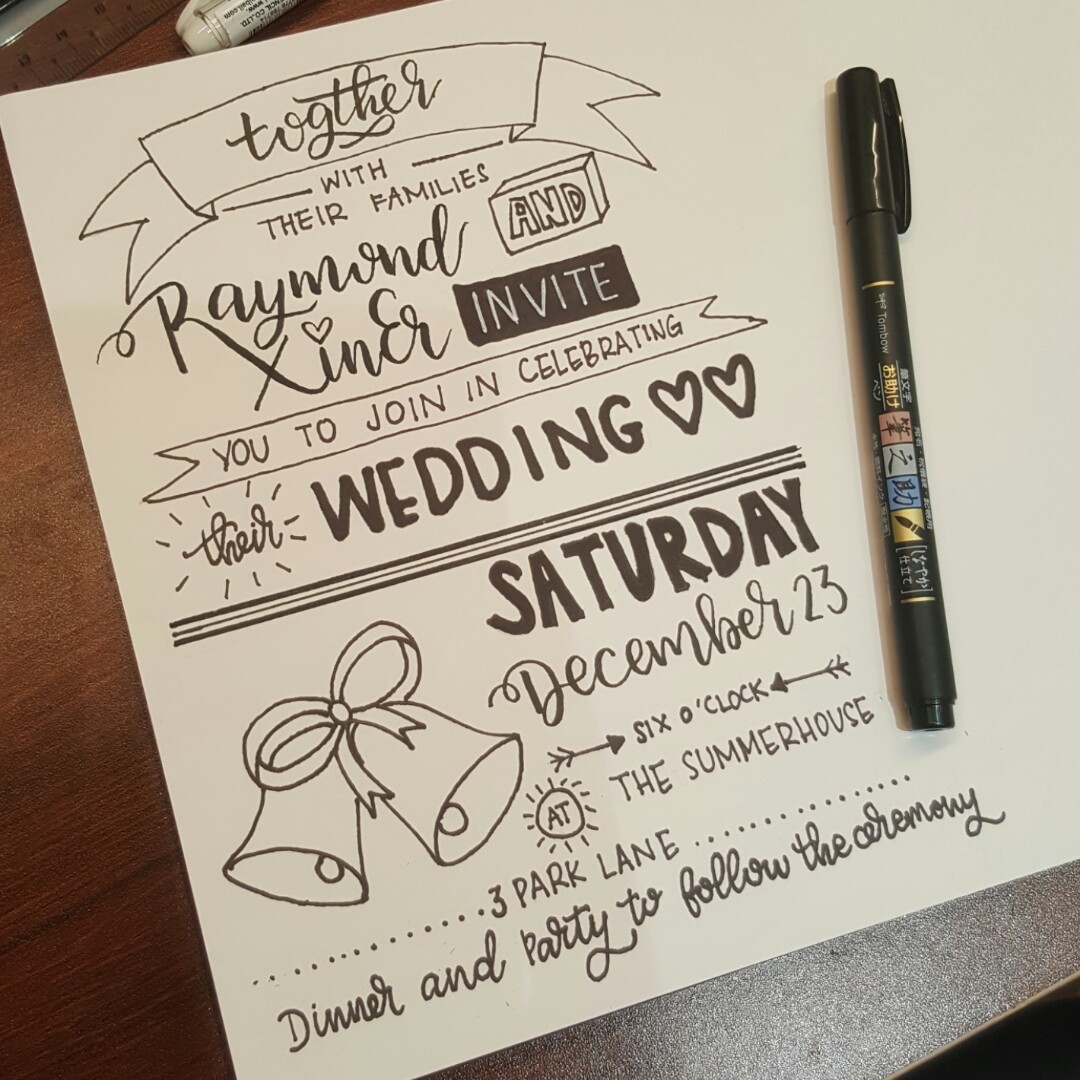 togther
WITH
THEIR FAMILIES
Raymond AND
XinEr INVITE
YOU TO JOIN IN CELEBRATING
their WEDDING
SATURDAY
December 23
SIX O'CLOCK
AT THE SUMMERHOUSE
3 PARK LANE
Dinner and Party to follow the ceremony
Tombow
筆文字
お助け
ペン
筆之助
しなやか
仕立て